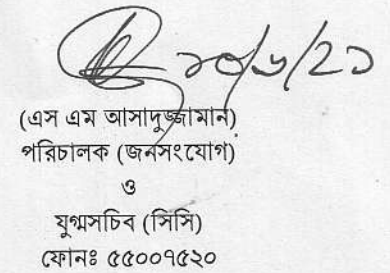 ১০/৬/২১
(এস এম আসাদুজ্জামান)
পরিচালক (জনসংযোগ)
ও
যুগ্মসচিব (সিসি)
ফোনঃ ৫৫০০৭৫২০